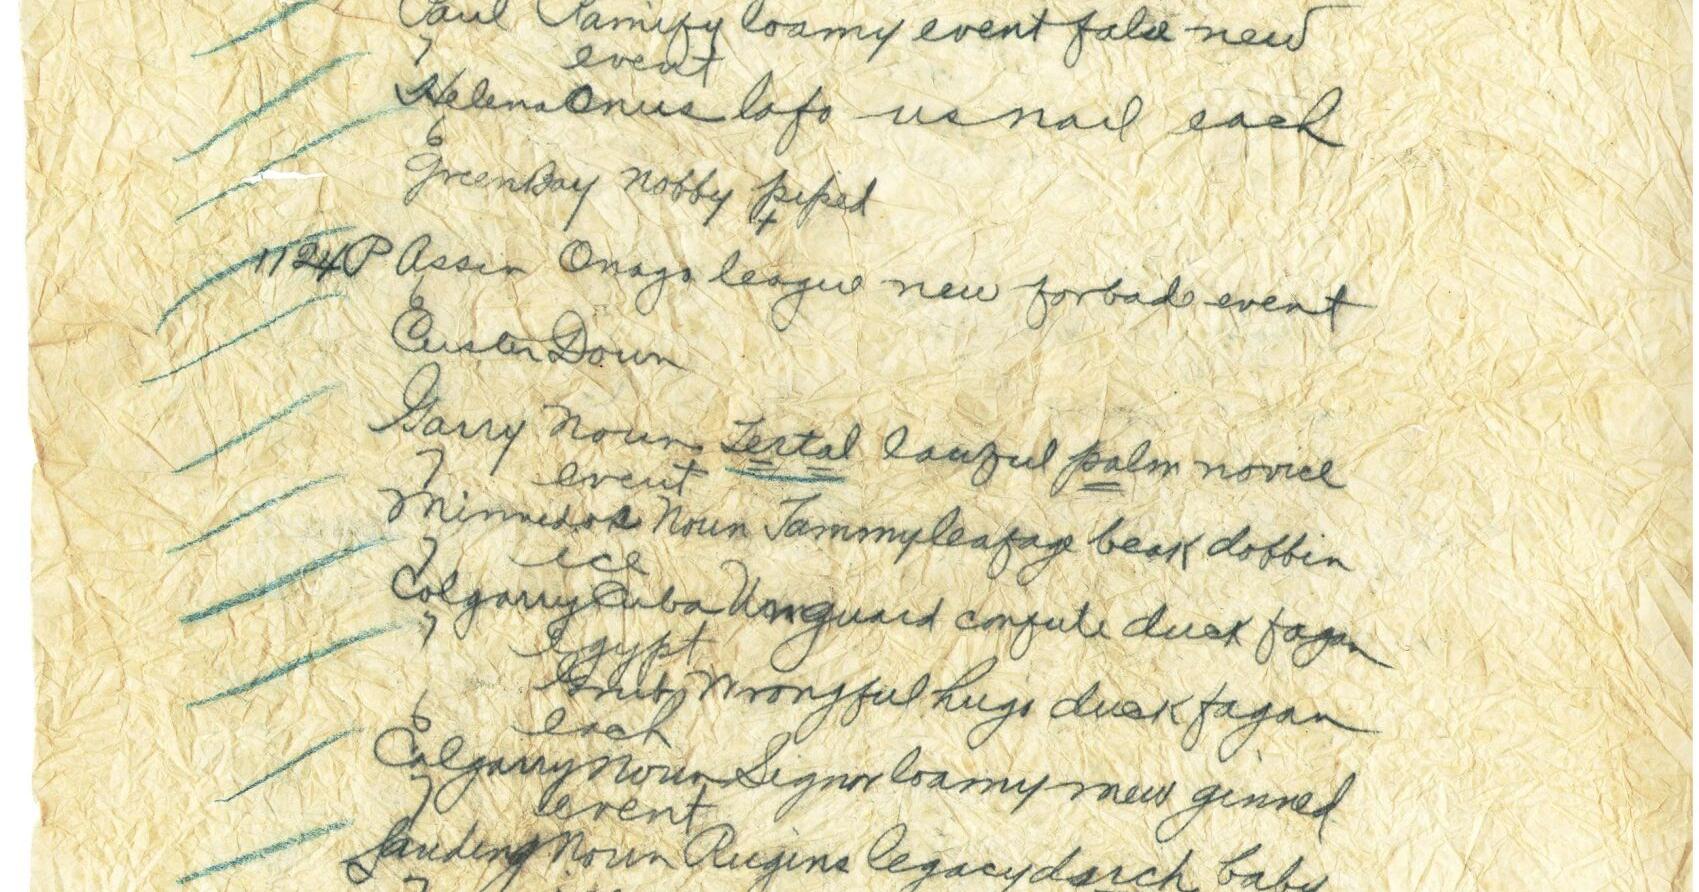 Paul Ramify loamy event false new
7 event
Helena Onus lofo us nail each
6
GreenBay nobby piped
1124P Assin Onago league new forbade event
6
Custer Down
Garry Noun Tertal lawful palm novice
7 event
Minnedos Noun Jammy leafage beak dobbin
7 ice
Calgarry Cuba Unguard confute duck fagan
7 Egypt
Wrongful hugo duck fagan
6 each
Calgarry Noun Signor loamy mew ginned
7 event
Landing Noun Rugins legacy duck baby
7